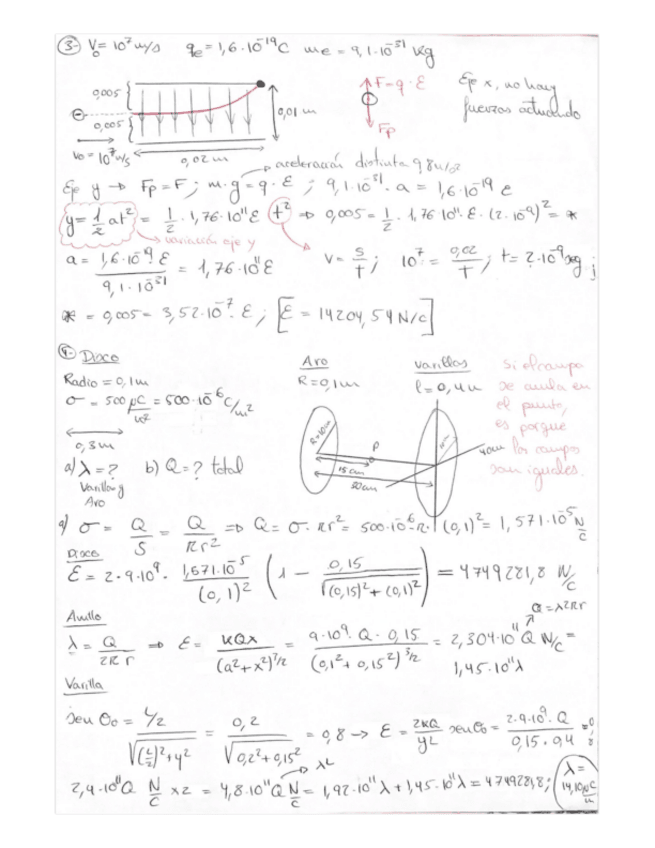 3- V₀ = 10⁷ m/s   qe = 1,6·10⁻¹⁹ C   me = 9,1·10⁻³¹ kg
0,005
0,005
0,01 m
v₀ = 10⁷ m/s
0,02 m
F = q·E
Fp
Eje x, no hay
fuerzas actuando
aceleración distinta 9,8 m/s²
Eje y → Fp = F ; m·g = q·E ; 9,1·10⁻³¹·a = 1,6·10⁻¹⁹ E
y = 1/2 at² = 1/2 · 1,76·10¹¹ E t² ⇒ 0,005 = 1/2 · 1,76·10¹¹·E·(2·10⁻⁹)² = *
variación eje y
a = 1,6·10⁻¹⁹ E / 9,1·10⁻³¹ = 1,76·10¹¹ E   V = s/t ; 10⁷ = 0,02/t ; t = 2·10⁻⁹ seg ;
* = 0,005 = 3,52·10⁻⁷·E ; [E = 14204,54 N/C]
4- Disco
Radio = 0,1 m
σ = 500 µC/m² = 500·10⁻⁶ C/m²
0,3 m
a) λ = ?   b) Q = ? total
Varilla y
Aro
Aro
R = 0,1 m
varillas
l = 0,4 m
R = 10 cm
P
15 cm
30 cm
40 cm
Si el campo
se anula en
el punto,
es porque
los campos
son iguales.
a) σ = Q/S = Q/πr² ⇒ Q = σ·πr² = 500·10⁻⁶·π·(0,1)² = 1,571·10⁻⁵ N/C
Disco
E = 2·9·10⁹ · 1,571·10⁻⁵/(0,1)² (1 − 0,15/√((0,15)²+(0,1)²)) = 4749281,8 N/C
Anillo
Q = λ2πr
λ = Q/2πr ⇒ E = KQx/(a²+x²)^3/2 = 9·10⁹·Q·0,15/(0,1²+0,15²)^3/2 = 2,304·10¹¹ Q N/C =
1,45·10¹¹ λ
Varilla
sen θ₀ = L/2 / √((L/2)²+y²) = 0,2/√(0,2²+0,15²) = 0,8 → E = 2KQ/yL sen θ₀ = 2·9·10⁹·Q/0,15·0,4 · 0,8
λL
2,4·10¹¹Q N/C x2 = 4,8·10¹¹Q N/C = 1,92·10¹¹ λ + 1,45·10¹¹ λ = 4749281,8 ; λ =
14,10 µC/m